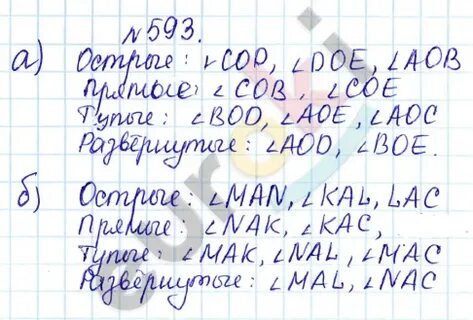 №593.
а) Острые: ∠COD, ∠DOE, ∠AOB
Прямые: ∠COB, ∠COE
Тупые: ∠BOD, ∠AOE, ∠AOC
Развёрнутые: ∠AOD, ∠BOE.
б) Острые: ∠MAN, ∠KAL, LAC
Прямые: ∠NAK, ∠KAC,
Тупые: ∠MAK, ∠NAL, ∠MAC
Развёрнутые: ∠MAL, ∠NAC
euroki